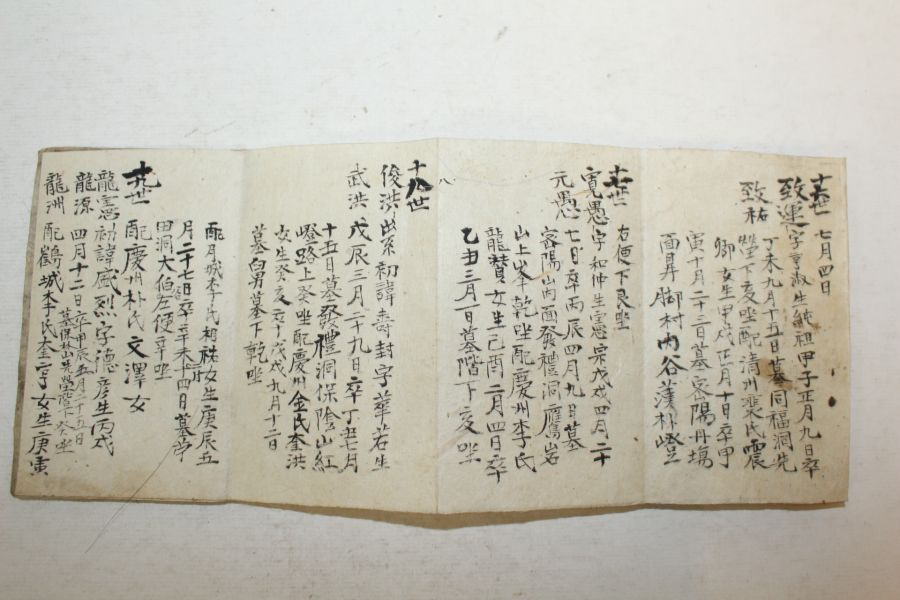 十六世 七月四日
致運 字章淑生純祖甲子正月九日卒
丁未九月十五日墓同福洞先
致祐 塋下亥坐配清州裵氏震
卿女生甲戌正月十日卒甲
寅十月二十三日墓密陽丹場
面昇脚村內谷蓬朴嶝
右便下艮坐
十七世
寬愚 字和仲生憲宗戊戌四月二十
元愚 七日卒丙辰四月九日墓
密陽山內面發禮洞雁岩
山上峯乾坐配慶州李氏
龍贊女生己酉二月四日卒
乙丑三月一日墓階下亥坐
八
十八世
俊洪 出系初諱壽封字華若生
武洪 戊辰三月二十九日卒丁丑七月
十五日墓發禮洞保陰山紅
嶝路上癸坐配慶州金氏奎洪
女生癸亥卒戊戌九月十二日
墓白男墓下乾坐
配月城李氏相祐女生庚辰五
月二十七日卒辛未十四日墓亭
田洞大伯左便辛坐
十九世 配慶州朴氏文澤女
龍憲 初諱盛烈字德彦生丙戌
龍源 四月十二日卒甲辰五月二十五日
墓保林山先塋階下癸坐
龍洲 配鶴城李氏奎亨女生庚寅